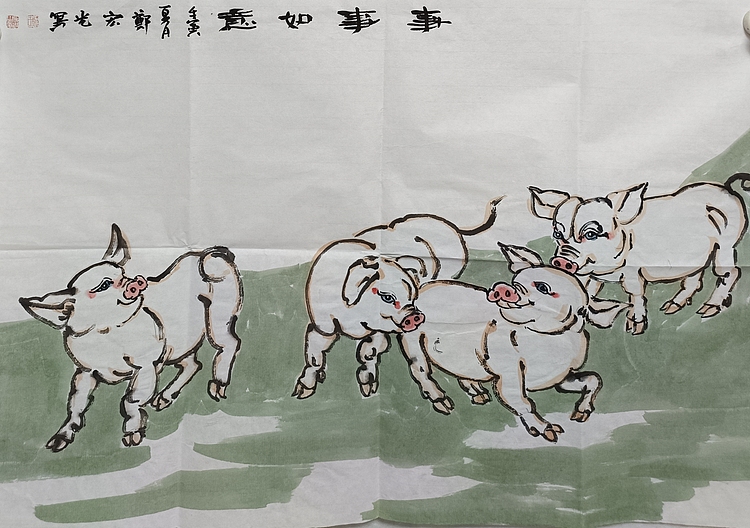 事事如意 壬寅夏月 鄭宏光寫